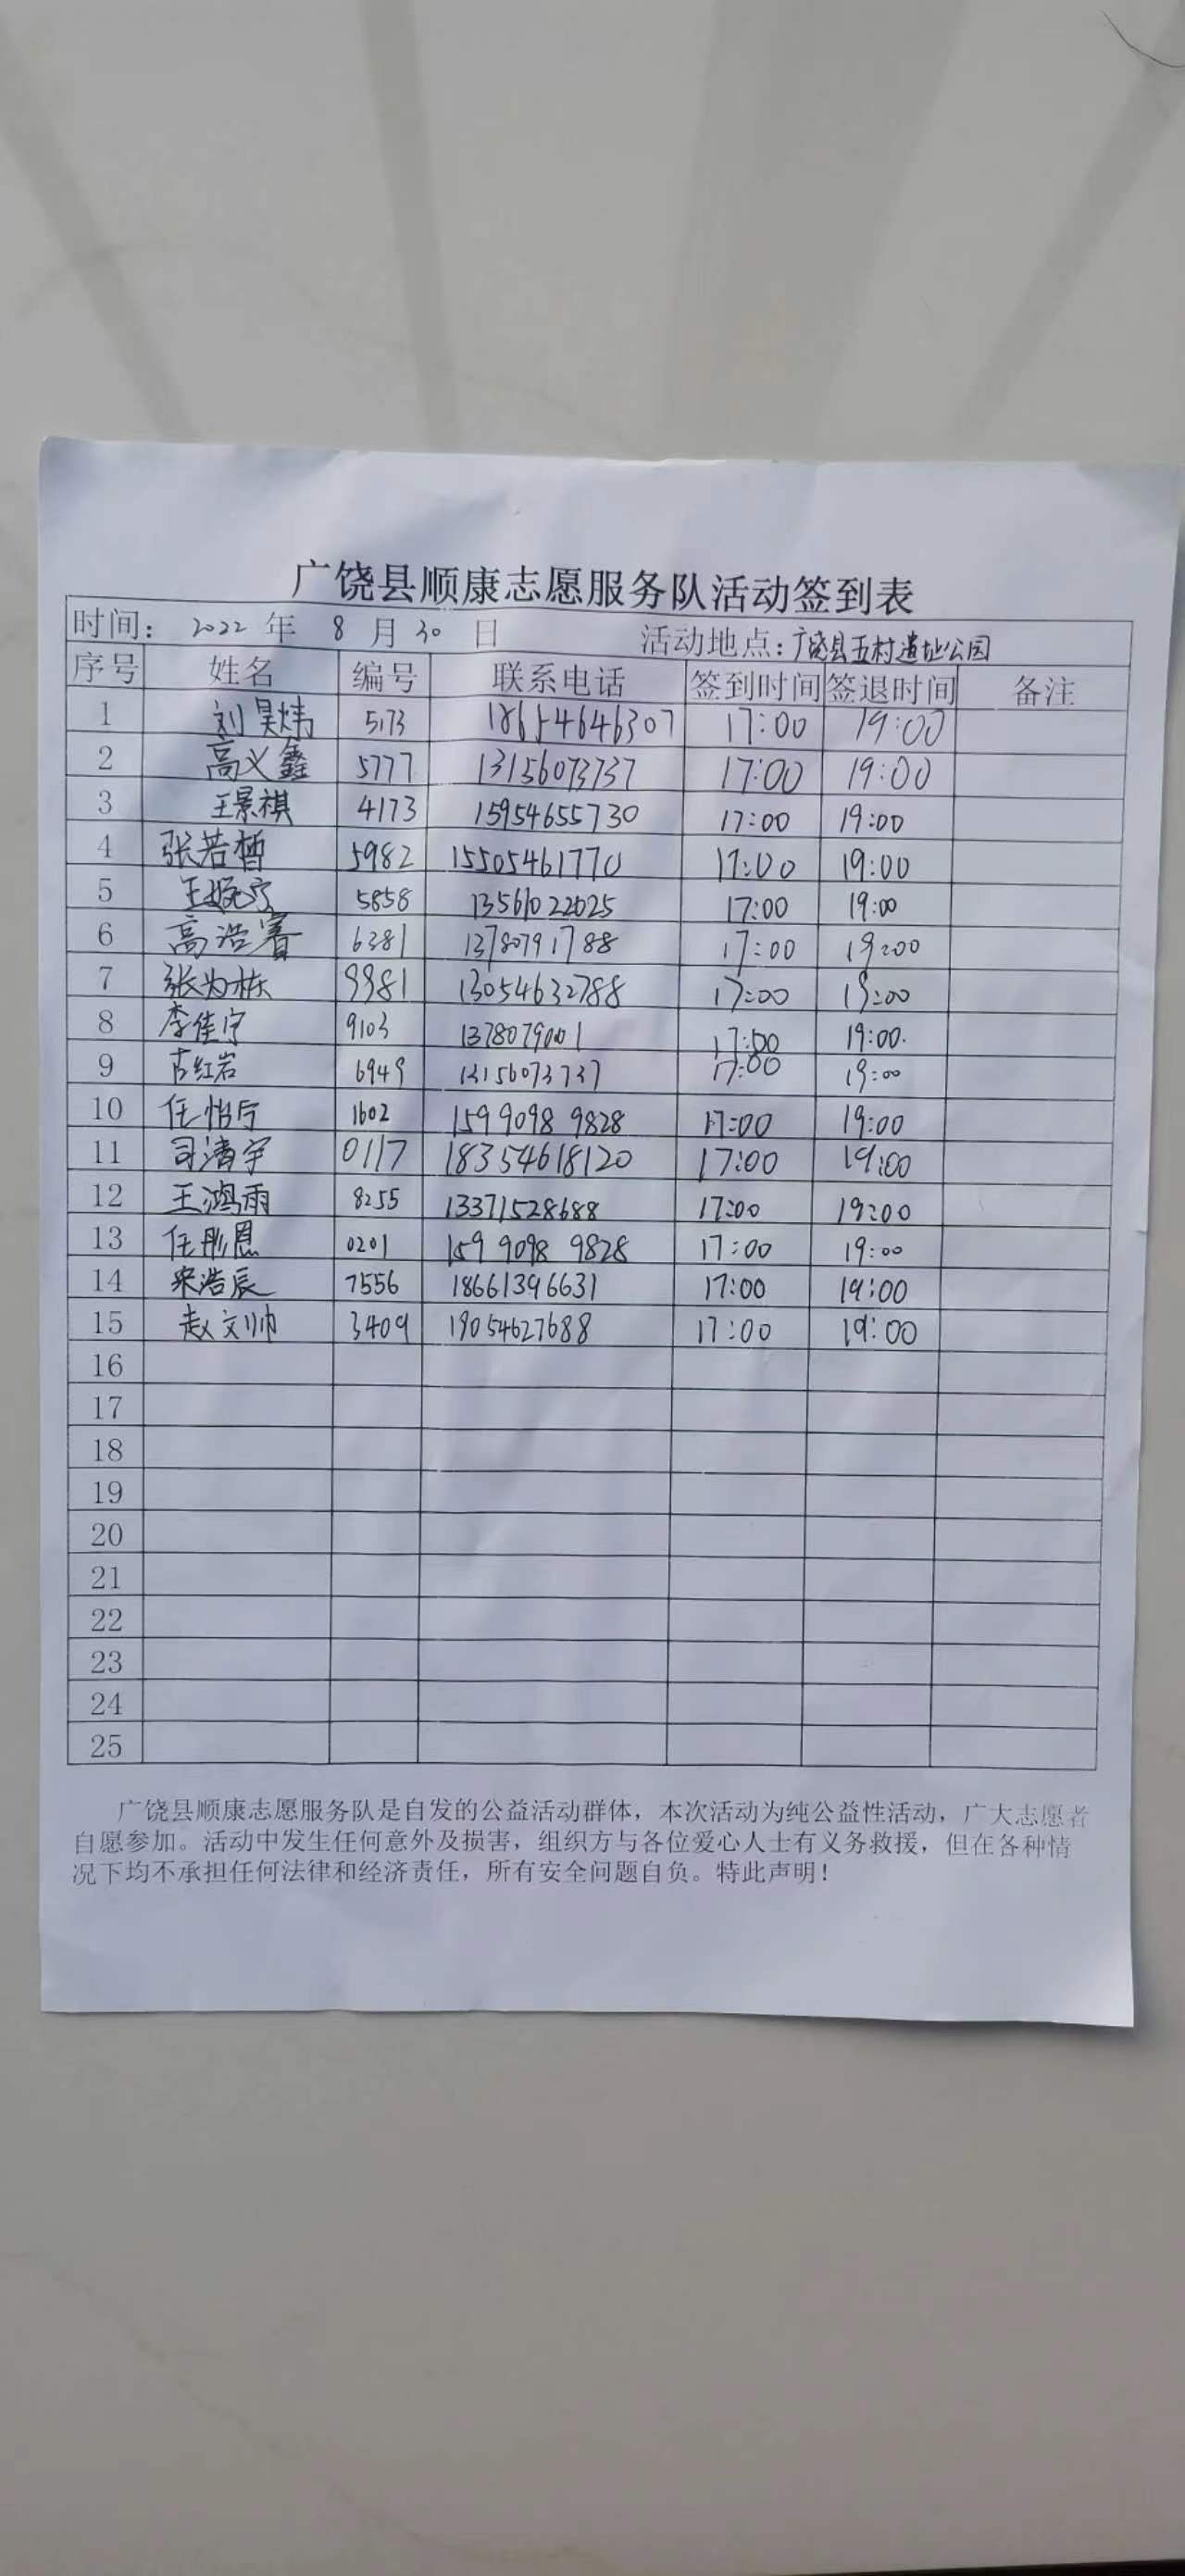 广饶县顺康志愿服务队活动签到表
时间： 2022 年 8 月 30 日 活动地点：广饶县五村遗址公园
序号 姓名 编号 联系电话 签到时间 签退时间 备注
1 刘昊炜 5173 18654646307 17:00 19:00
2 高义鑫 5777 13156073737 17:00 19:00
3 王景祺 4173 15954655730 17:00 19:00
4 张若晳 5982 15505461770 17:00 19:00
5 王婉宁 5858 13561022025 17:00 19:00
6 高浩睿 6381 13780791788 17:00 19:00
7 张为栋 9981 13054632788 17:00 19:00
8 李佳宁 9103 1378079001 17:00 19:00.
9 古红岩 6949 13156073737 17:00 19:00
10 任怡与 1602 159 9098 9828 17:00 19:00
11 司清宇 0117 18354618120 17:00 19:00
12 王鸿雨 8255 13371528688 17:00 19:00
13 任彤恩 0201 159 9098 9828 17:00 19:00
14 宋浩辰 7556 18661396631 17:00 19:00
15 赵文帅 3409 19054627688 17:00 19:00
16
17
18
19
20
21
22
23
24
25
广饶县顺康志愿服务队是自发的公益活动群体，本次活动为纯公益性活动，广大志愿者
自愿参加。活动中发生任何意外及损害，组织方与各位爱心人士有义务救援，但在各种情
况下均不承担任何法律和经济责任，所有安全问题自负。特此声明！